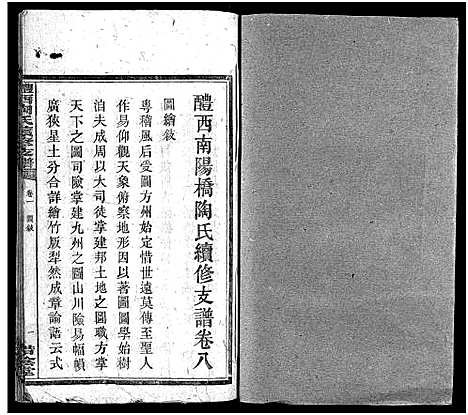 醴西南陽橋陶氏續修支譜卷八
圖繪敘
粵稽風后受圖方州始定惜世遠莫傳至聖人
作易仰觀天象俯察地形因以著圖圖學始樹
洎夫成周以大司徒掌建邦土地之圖職方掌
天下之圖司險掌建九州之圖山川險易幅幀
廣狹星土分合詳繪竹版犁然成章論語云式
醴西陶氏續修支譜
卷一 圖敘
一